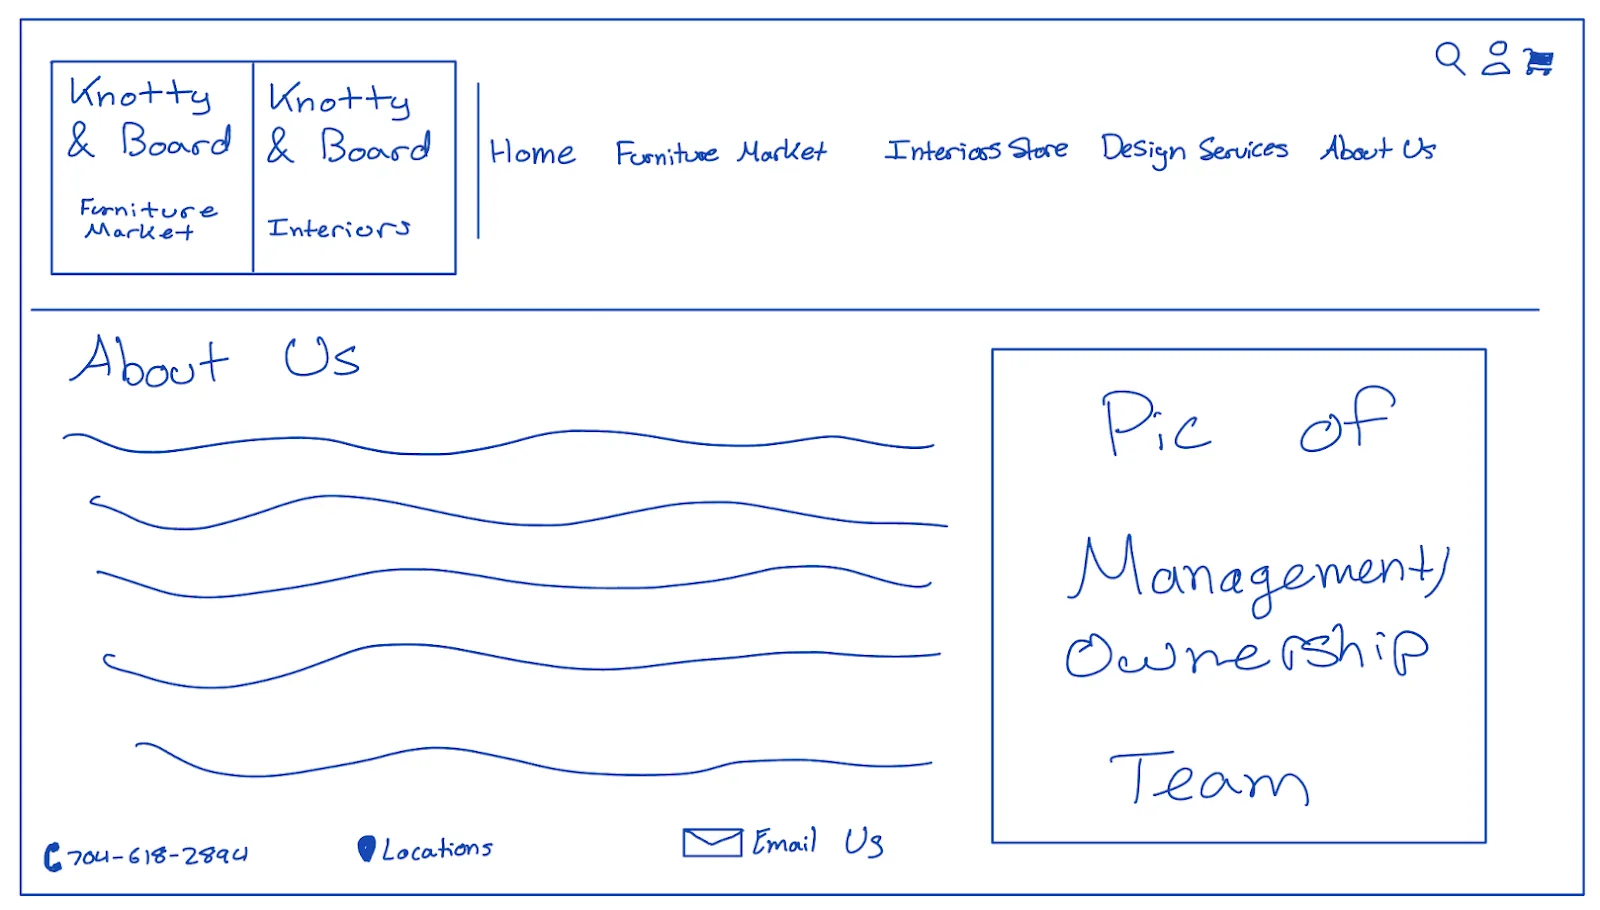 Knotty
& Board
Furniture
Market
Knotty
& Board
Interiors
Home Furniture Market Interiors Store Design Services About Us
About Us
Pic of
Management/
Ownership
Team
704-618-2894
Locations
Email Us